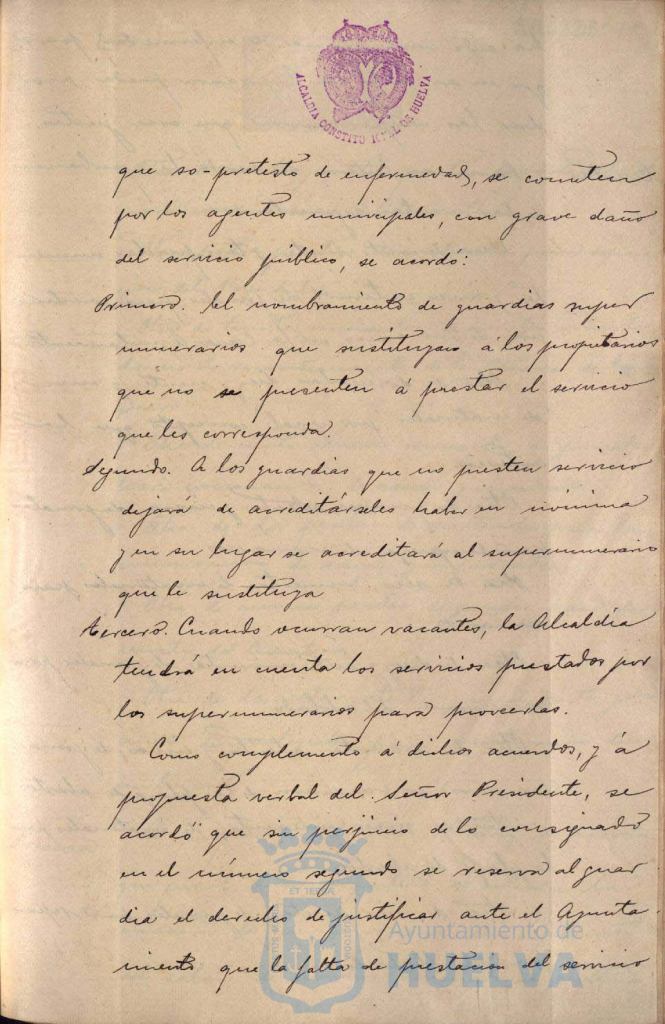 ALCALDIA CONSTITUCIONAL DE HUELVA
que so-pretesto de enfermedad, se cometen
por los agentes municipales, con grave daño
del servicio público, se acordó:
Primero. El nombramiento de guardias super
numerarios que sustituyan á los propietarios
que no se presenten á prestar el servicio
que les corresponda.
Segundo. A los guardias que no presten servicio
dejará de acreditárseles haber en nómina
y en su lugar se acreditará al supernumerario
que le sustituya
tercero. Cuando ocurran vacantes, la Alcaldía
tendrá en cuenta los servicios prestados por
los supernumerarios para proveerlas.
Como complemento á dichos acuerdos, y á
propuesta verbal del Señor Presidente, se
acordó que sin perjuicio de lo consignado
en el número segundo se reserva al guar
dia el derecho de justificar ante el Ayunta
miento que la falta de prestación del servicio
Ayuntamiento de
HUELVA